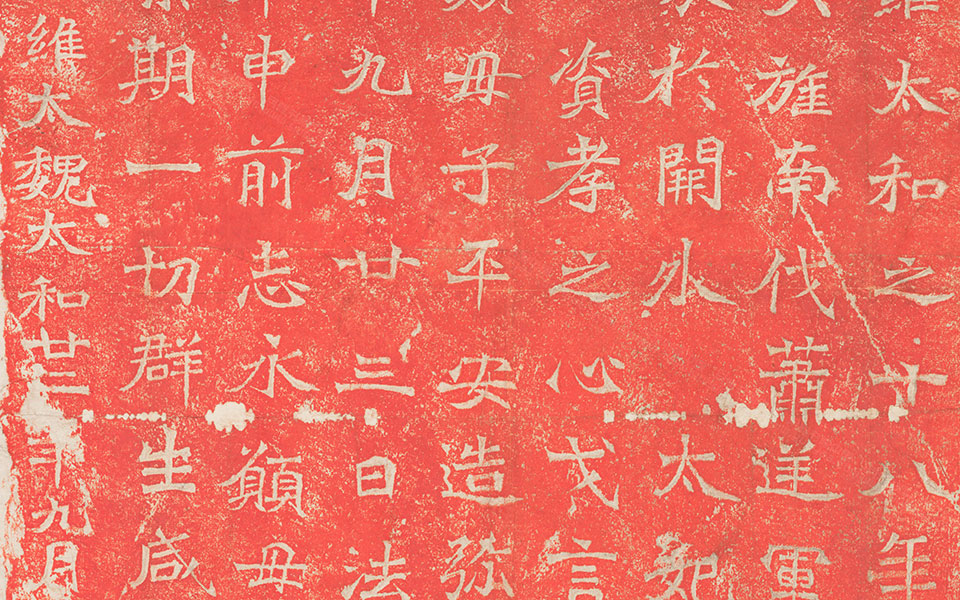 維太和之十八年
旌南伐蕭逆軍
於關外太妃
資孝之心戈言
毋子平安造弥
九月廿三日法
申前志永願毋
期一切群生咸
維太魏太和廿二年九月